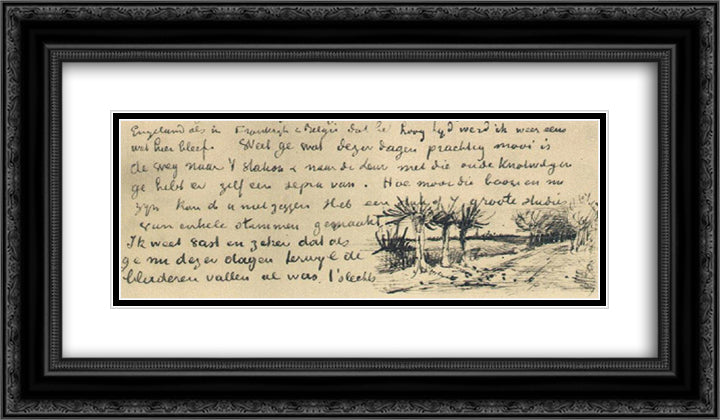 Engeland als in Frankrijk & België dat het hoog tijd werd ik weer eens
wat hier bleef. Weet ge wat dezer dagen prachtig mooi is
de weg naar 't station & naar de Leur met die oude Knotwilgen
ge hebt er zelf een sepia van. Hoe mooi die boomen nu
zijn kan ik U niet zeggen Heb een groote studies
van enkele stammen gemaakt
Ik weet vast en zeker dat als
ge nu dezer dagen terwijl de
bladeren vallen al was 't slechts